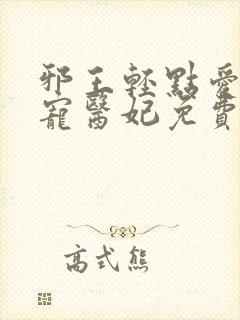 邪王輕點愛
寵醫妃免費
高式熊